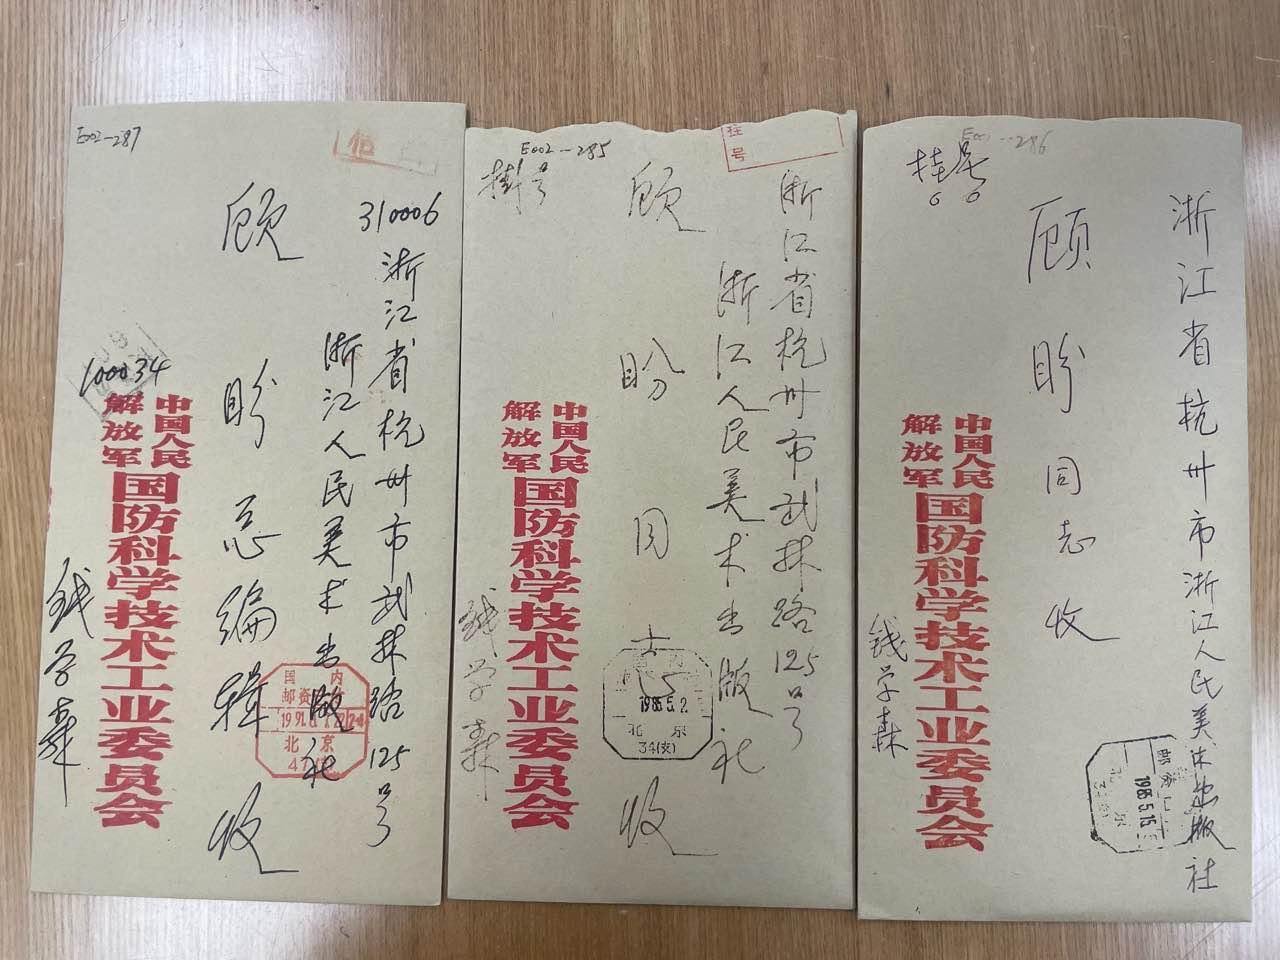 E002-287
310006
浙江省杭州市武林路125号
浙江人民美术出版社
顾盼总编辑 收
100034
中国人民
解放军
国防科学技术工业委员会
钱学森
国内
邮资
北京
E002-285
挂号
掛号
浙江省杭州市武林路125号
浙江人民美术出版社
顾盼同志 收
1985.5.2
北京
34(支)
中国人民
解放军
国防科学技术工业委员会
钱学森
E002-286
挂号
浙江省杭州市浙江人民美术出版社
顾盼同志收
1985.5.15
中国人民
解放军
国防科学技术工业委员会
钱学森